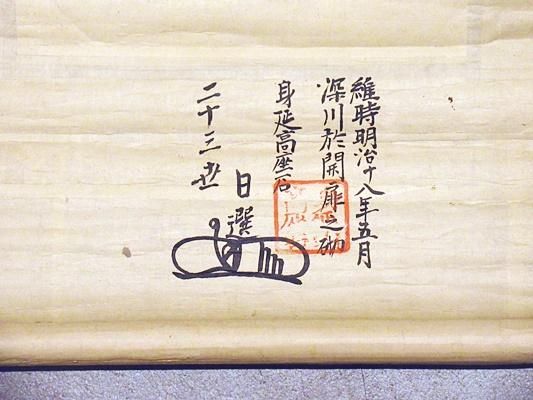 維時明治十八年五月
深川於開扉之砌
身延高座石
二十三世 日選